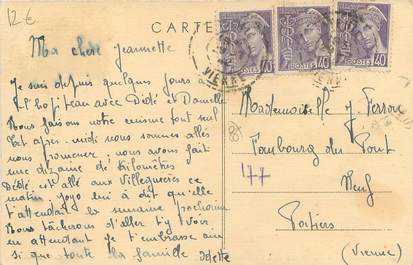 12€
CARTE
Ma chère Jeannette
Je suis depuis quelques jours à
l'hopiteau avec Dédé et Danielle
Nous faisons notre cuisine tout seul
Cet apres-midi nous sommes allés
nous promener, nous avons fait
une dizaine de kilomètres
Dédé est allé aux Villequieres ce
matin, jojo lui à dit qu'elle
t'attendait la semaine prochaine
Nous tâcherons d'aller ty voir
en attendant je t'embrasse ainsi
si que toute la famille Odette
40 POSTES 40 POSTES 40
VIENNE
Mademoiselle J.
Faubourg du Pont
Neuf
177
Poitiers
(Vienne)